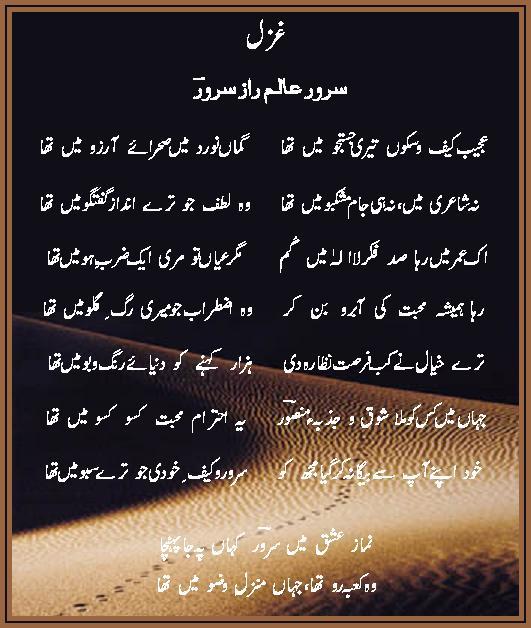 غزل
سرور عالم راز سرورؔ
عجیب کیف و سکوں تیری جستجو میں تھا گماں نورد میں صحرائے آرزو میں تھا
نہ شاعری میں، نہ ہی جام مشکبو میں تھا وہ لطف جو ترے انداز گفتگو میں تھا
اک عمر میں رہا صد فکر لا الہٰ میں گم مگر عیاں تو مری ایک ضرب ہو میں تھا
رہا ہمیشہ محبت کی آبرو بن کر وہ اضطراب جو میری رگِ گلو میں تھا
ترے خیال نے کب فرصت نظارہ دی ہزار کہنے کو دنیائے رنگ و بو میں تھا
جہاں میں کس کو ملا شوق و جذبہء منصورؔ یہ احترام محبت کسو کسو میں تھا
خود اپنے آپ سے بیگانہ کر گیا مجھ کو سرور و کیفِ خودی جو ترے سبو میں تھا
نماز عشق میں سرورؔ کہاں پہ جا پہنچا
وہ کعبہ رو تھا، جہاں منزلِ وضو میں تھا